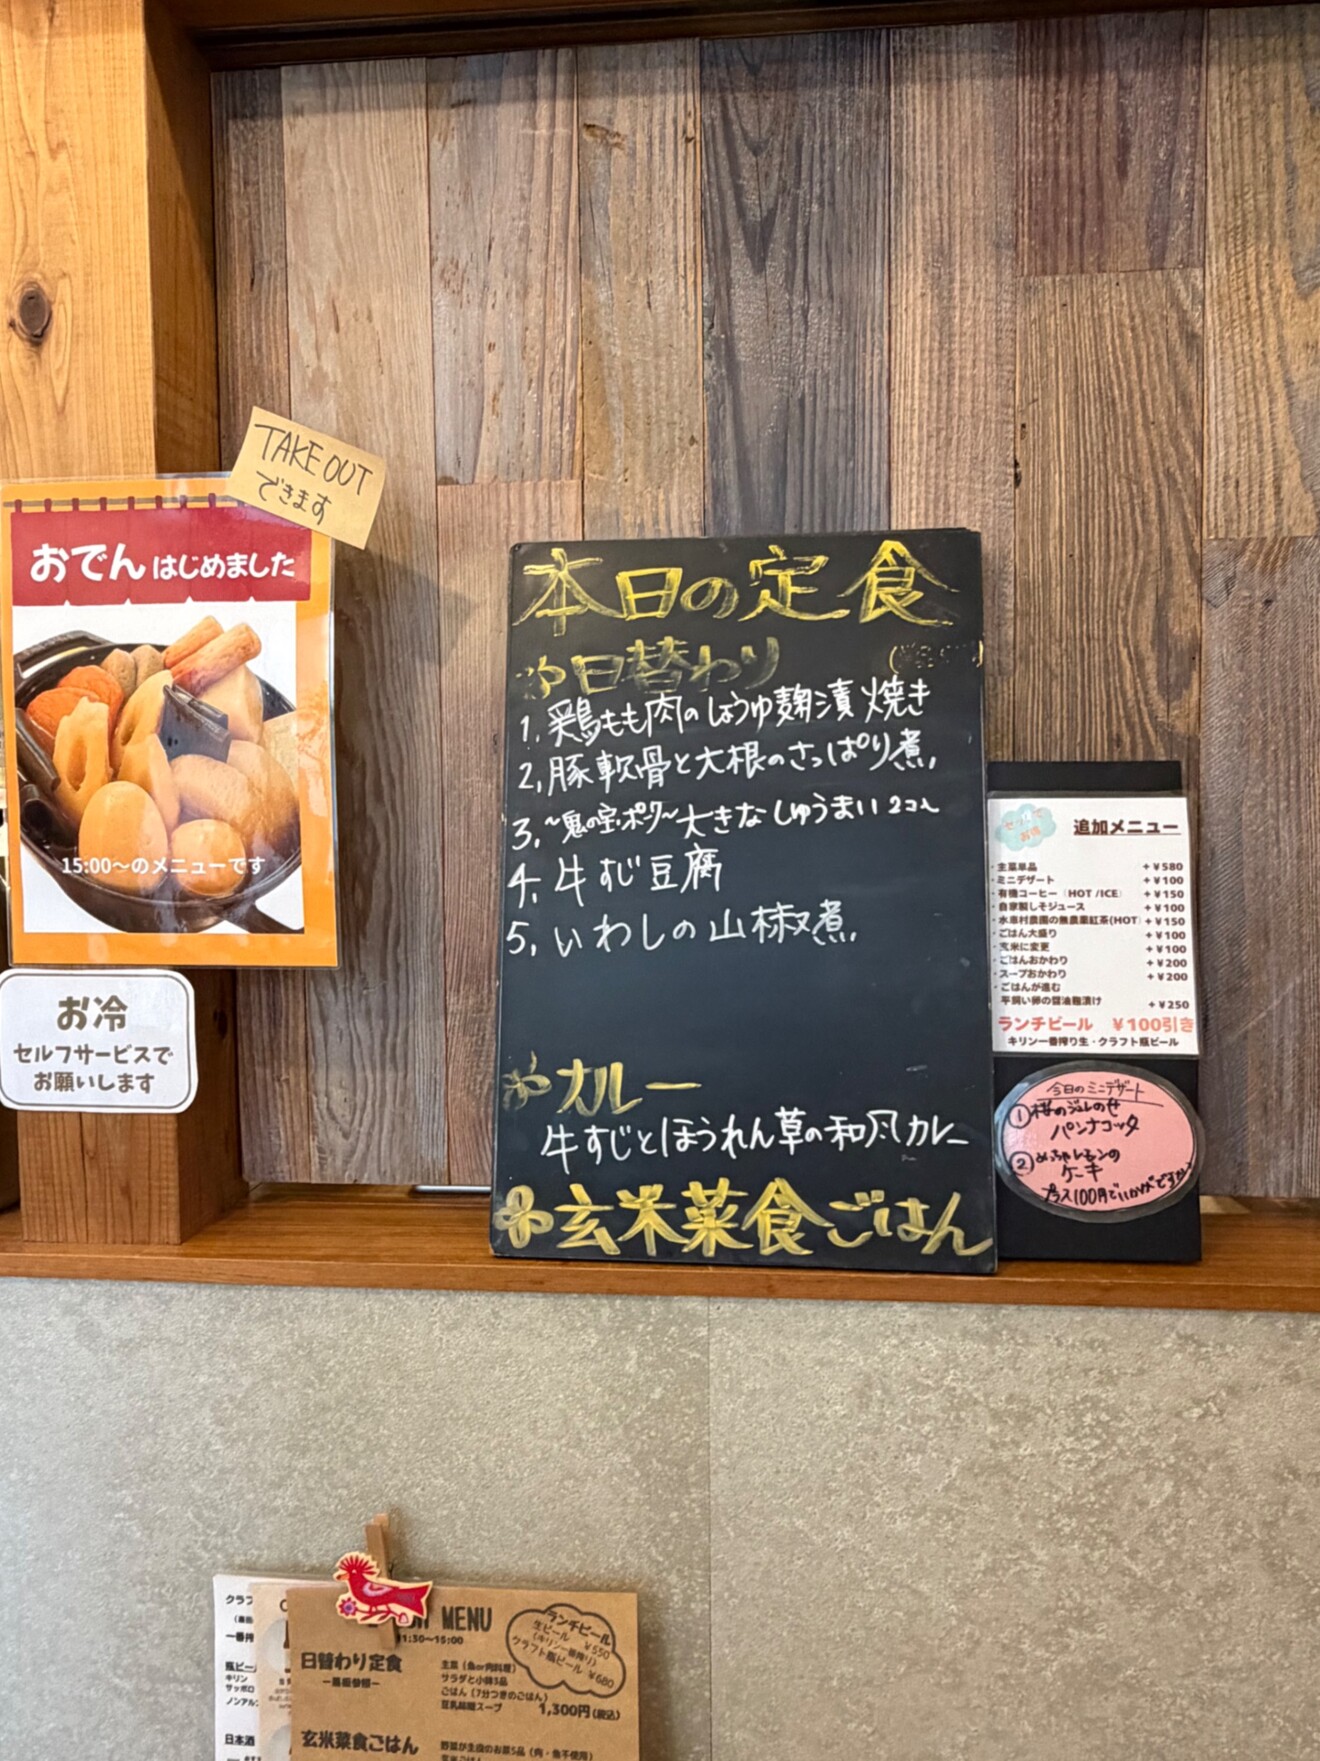 TAKE OUT
できます
おでん はじめました
15:00〜のメニューです
お冷
セルフサービスで
お願いします
本日の定食
日替わり
1. 鶏もも肉のしょうゆ麹漬焼き
2. 豚軟骨と大根のさっぱり煮
3. 〜鬼の宝・ポーク〜大きなしゅうまい 2コ入
4. 牛すじ豆腐
5. いわしの山椒煮
カレー
牛すじとほうれん草の和風カレー
玄米菜食ごはん
追加メニュー
・主菜単品 +¥580
・ミニデザート +¥100
・有機コーヒー（HOT /ICE） +¥150
・自家製しそジュース +¥100
・水車村農園の無農薬紅茶(HOT) +¥150
・ごはん大盛り +¥100
・玄米に変更 +¥100
・ごはんおかわり +¥200
・スープおかわり +¥200
・ごはんが進む
平飼い卵の醤油麹漬け +¥250
ランチビール ¥100引き
キリン一番搾り生・クラフト瓶ビール
今日のミニデザート
① 桜のジュレのせ
パンナコッタ
② めっちゃレモンの
ケーキ
プラス100円でいかがですか
MENU
11:30〜15:00
ランチビール
生ビール ¥550
(キリン一番搾り)
クラフト瓶ビール ¥680
日替わり定食
ー黒板参照ー
主菜（魚or肉料理）
サラダと小鉢3品
ごはん（7分つきのごはん）
豆乳味噌スープ
1,300円(税込)
玄米菜食ごはん
野菜が主役のお菜5品（肉・魚不使用）
クラフ
一番搾
瓶ビー
キリン
サッポロ
ノンアル
日本酒